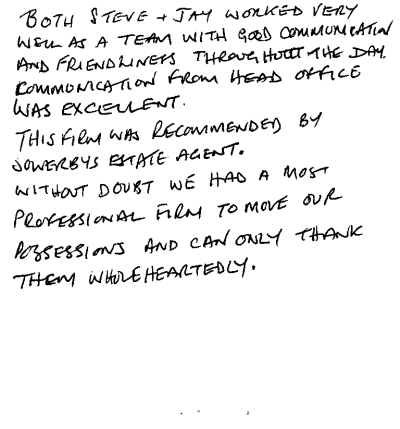 BOTH STEVE + JAY WORKED VERY
WELL AS A TEAM WITH GOOD COMMUNICATION
AND FRIENDLINESS THROUGHOUT THE DAY.
COMMUNICATION FROM HEAD OFFICE
WAS EXCELLENT.
THIS FIRM WAS RECOMMENDED BY
SOWERBYS ESTATE AGENT.
WITHOUT DOUBT WE HAD A MOST
PROFESSIONAL FIRM TO MOVE OUR
POSSESSIONS AND CAN ONLY THANK
THEM WHOLEHEARTEDLY.